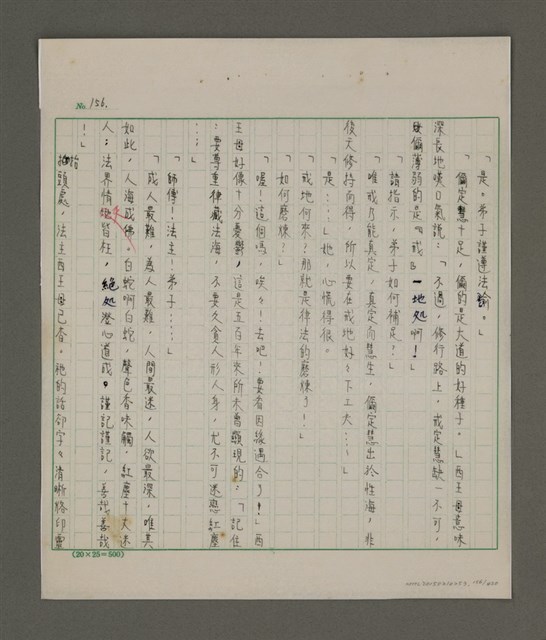 No. 156.
「是。弟子謹遵法諭。」
「儞定慧十足，儞的是大道的好種子。」西王母意味
深長地嘆口氣說：「不過，修行路上，戒定慧缺一不可，
儞薄弱的是『戒』一地処啊！」
「請指示，弟子如何補足？」
「唯戒乃能真定，真定而慧生，儞定慧出於性海，非
後天修持而得，所以要在戒地好々下工夫……」
「是……」她，心慌得很。
「戒地何來？那就是律法的磨煉了！」
「如何磨煉？」
「喔！這個嗎，唉々！去吧！要看因緣遇合了！」西
王母好像十分憂鬱，這是五百年來所未曾顯現的：「記住
：要尊重律藏法海，不要久貪人形人身，尤不可迷戀紅塵
……」
「師傅！法主！弟子……」
「成人最難，為人最難，人間最迷，人欲最深，唯其
如此，人海成佛。白蛇啊白蛇，聲色香味觸，紅塵十丈迷
人；法界情地皆枉，絕処澄心道成。謹記謹記，善哉善哉
！」
抬頭處，法主西王母已杳。祂的話卻字々清晰烙印靈
(20×25=500)